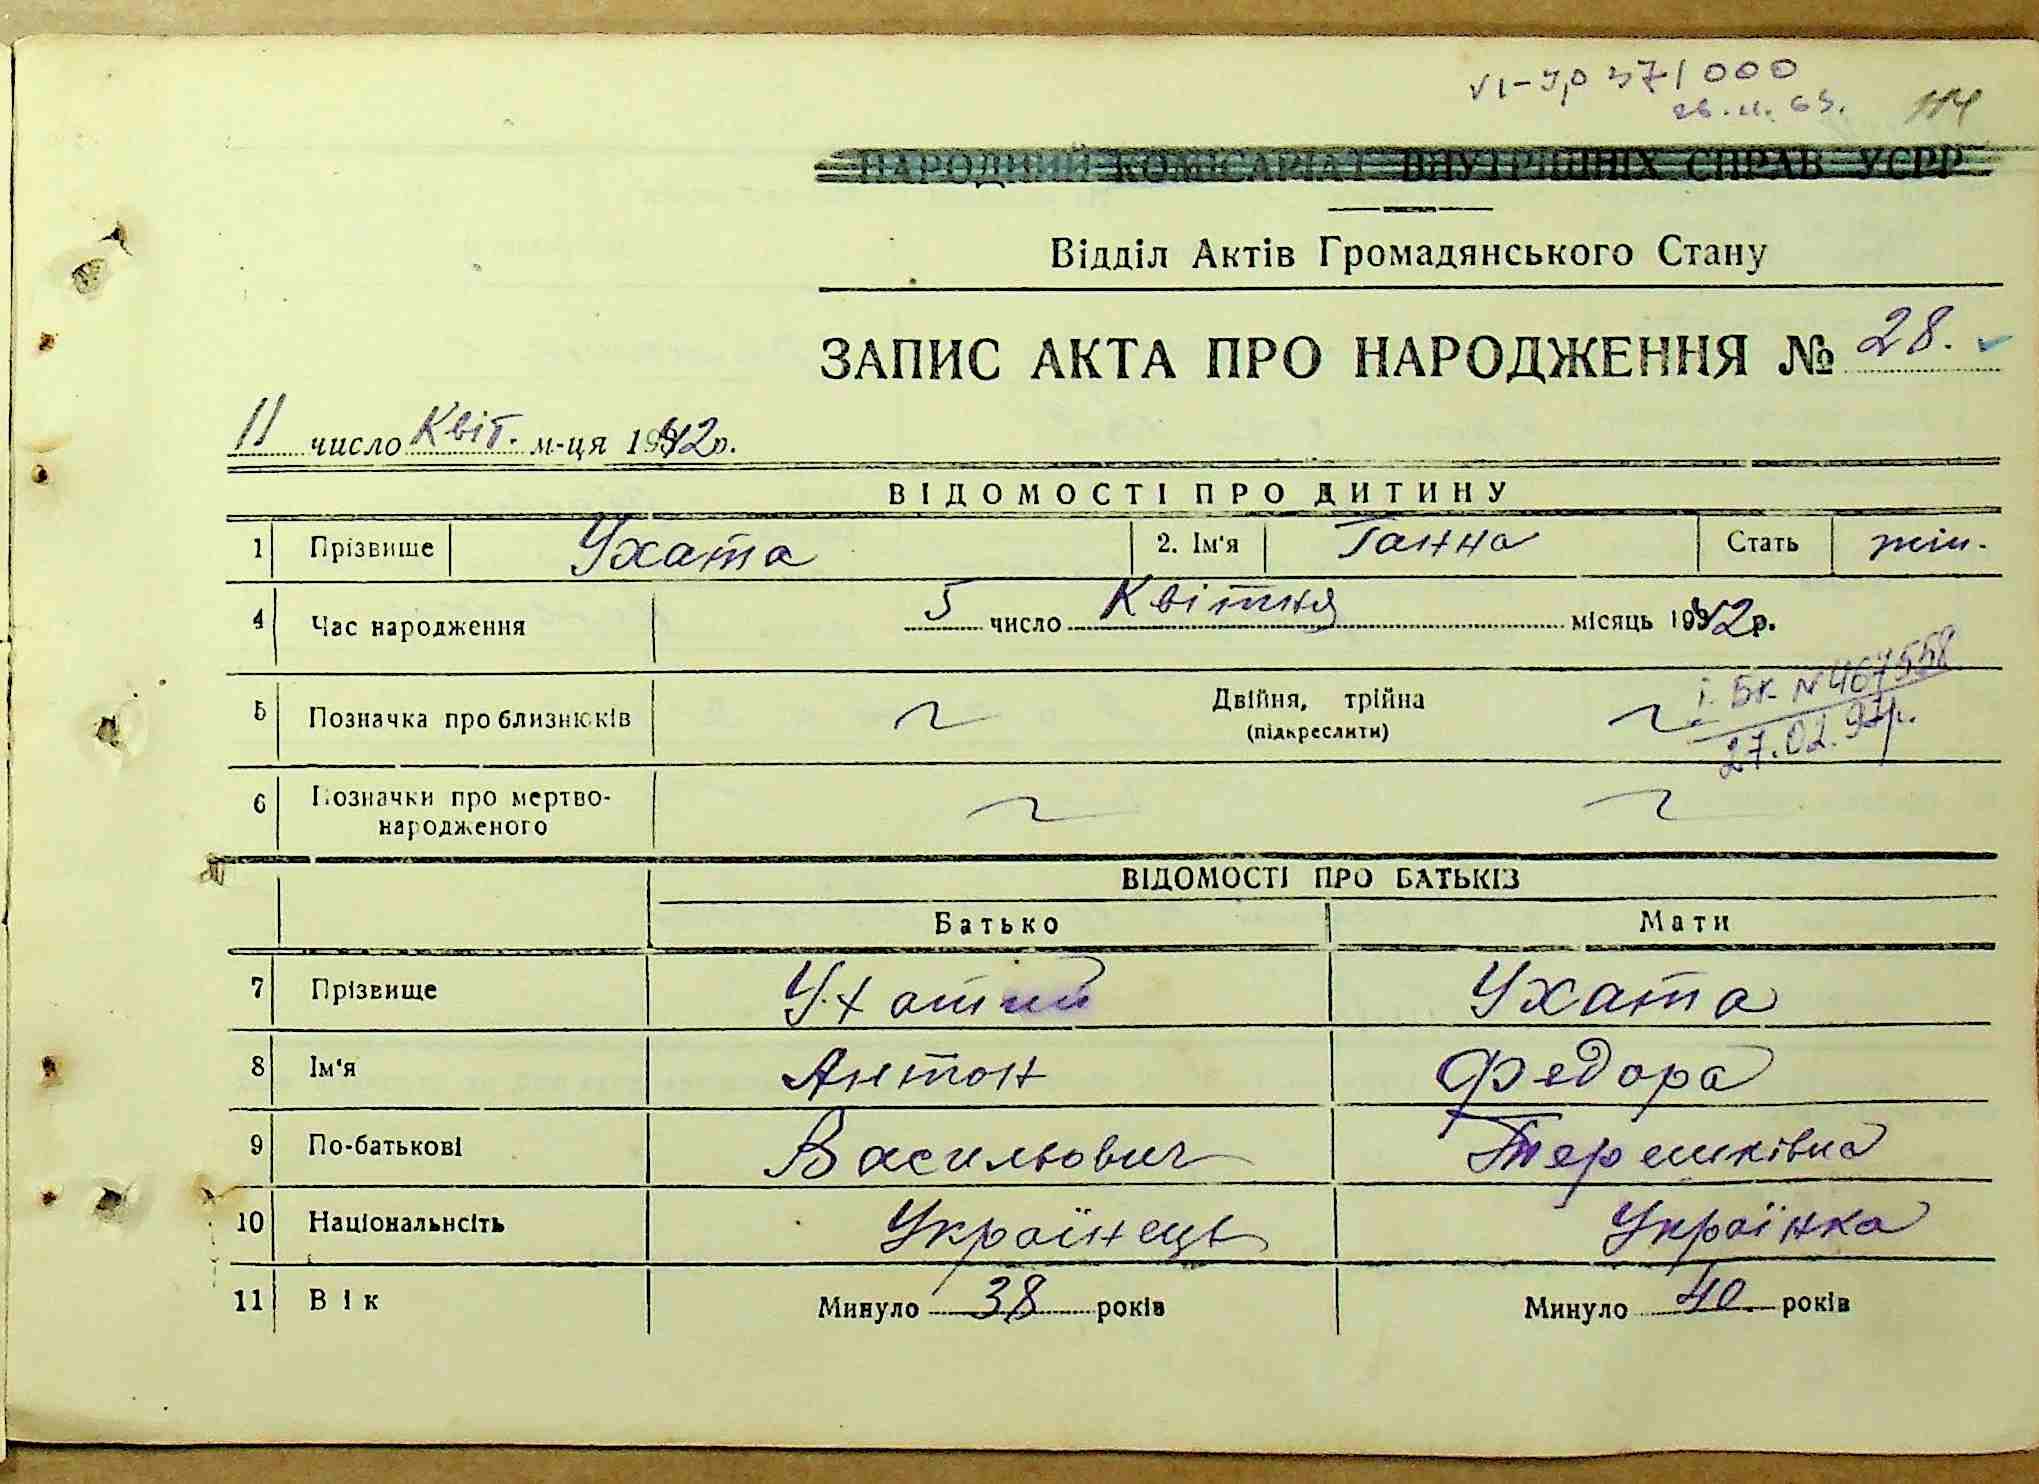 VI-УР 371000
26.11.63. 114
НАРОДНИЙ КОМІСАРІАТ ВНУТРІШНІХ СПРАВ УСРР
Відділ Актів Громадянського Стану
ЗАПИС АКТА ПРО НАРОДЖЕННЯ № 28.
11 число Квіт. м-ця 1942р.
ВІДОМОСТІ ПРО ДИТИНУ
1 Прізвище Ухата 2. Ім'я Ганна Стать жін.
4 Час народження 5 число Квітня місяць 1942р.
5 Позначка про близнюків Двійня, трійна
(підкреслити)
і. БК №467558
27.02.97р.
6 Позначки про мертво-
народженого
ВІДОМОСТІ ПРО БАТЬКІВ
Батько Мати
7 Прізвище Ухатий Ухата
8 Ім'я Антон Федора
9 По-батькові Васильович Терешківна
10 Національнсіть Українець Українка
11 Вік Минуло 38 років Минуло 40. років